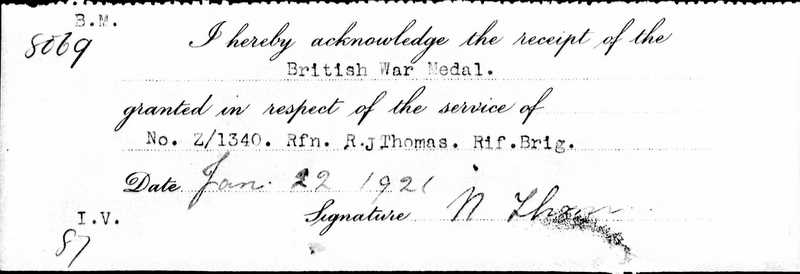 B.M.
8069
I hereby acknowledge the receipt of the
British War Medal.
granted in respect of the service of
No. Z/1340. Rfn. R.J Thomas. Rif.Brig.
Date Jan. 22 1921
I.V.
Signature N Thom
87